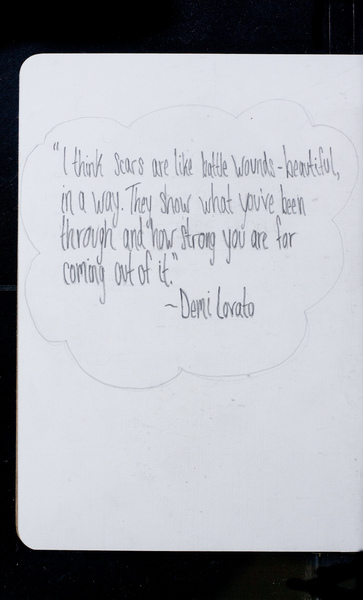 "I think scars are like battle wounds - beautiful,
in a way. They show what you've been
through and how strong you are for
coming out of it."
~Demi Lovato